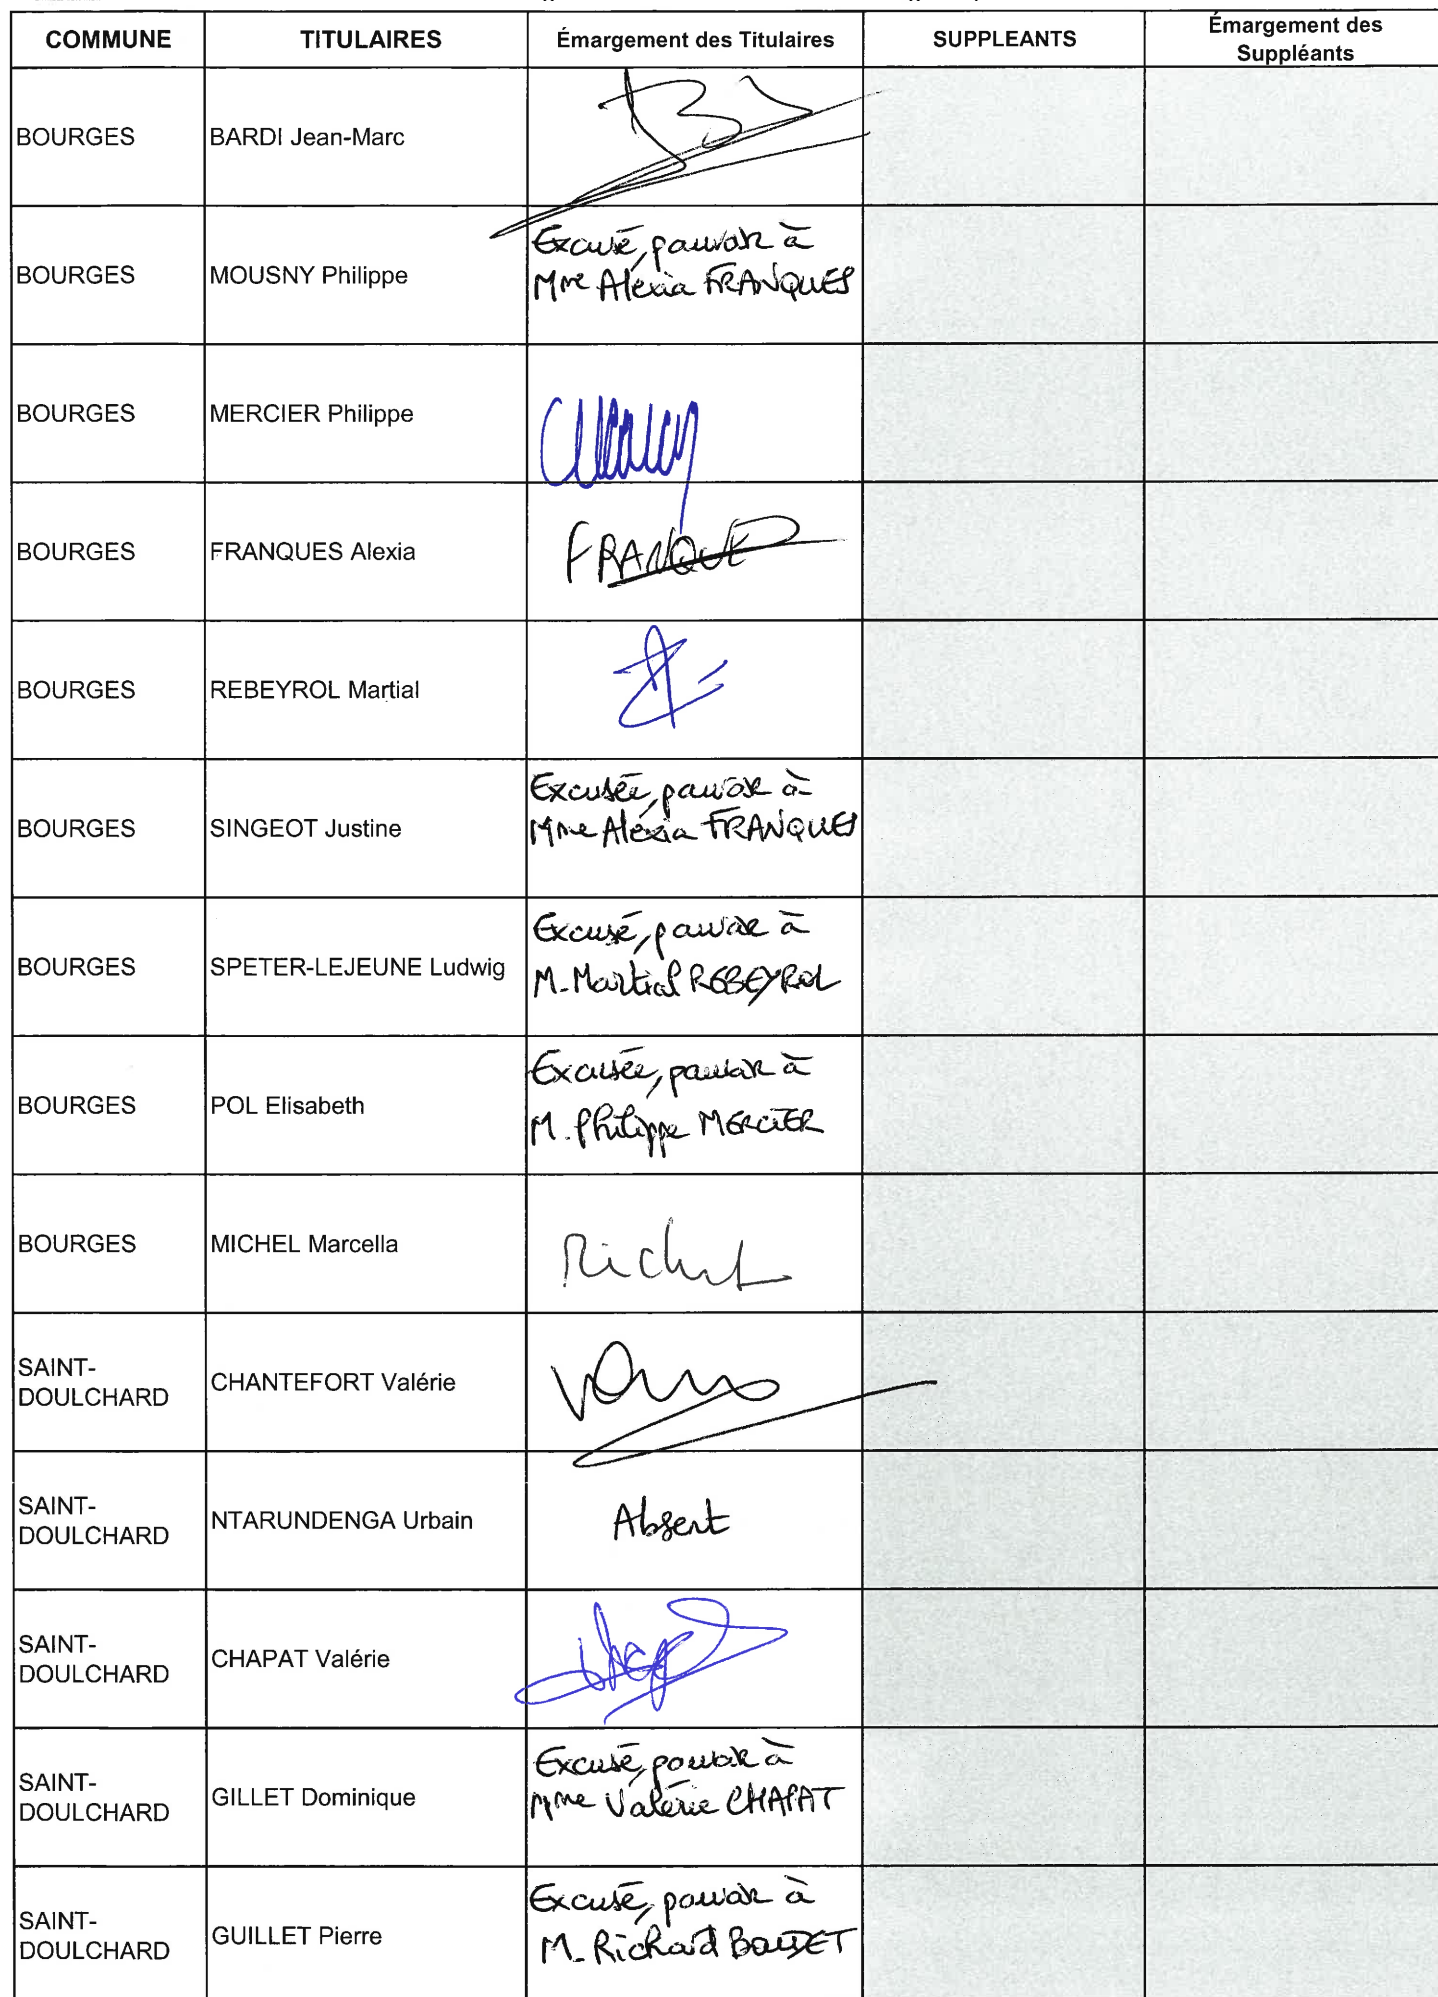 COMMUNE TITULAIRES Émargement des Titulaires SUPPLEANTS Émargement des
Suppléants
BOURGES BARDI Jean-Marc
BOURGES MOUSNY Philippe Excusé, pouvoir à
Mme Alexia FRANQUES
BOURGES MERCIER Philippe
BOURGES FRANQUES Alexia FRANQUES
BOURGES REBEYROL Martial
BOURGES SINGEOT Justine Excusée, pouvoir à
Mme Alexia FRANQUES
BOURGES SPETER-LEJEUNE Ludwig Excusé, pouvoir à
M. Martial REBEYROL
BOURGES POL Elisabeth Excusée, pouvoir à
M. Philippe MERCIER
BOURGES MICHEL Marcella
SAINT-
DOULCHARD CHANTEFORT Valérie
SAINT-
DOULCHARD NTARUNDENGA Urbain Absent
SAINT-
DOULCHARD CHAPAT Valérie
SAINT-
DOULCHARD GILLET Dominique Excusé, pouvoir à
Mme Valérie CHAPAT
SAINT-
DOULCHARD GUILLET Pierre Excusé, pouvoir à
M. Richard BOUDET